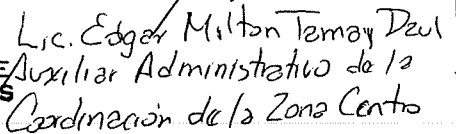 Lic. Edgar Milton Tamay Dzul
Auxiliar Administrativo de la
S
Coordinación de la Zona Centro